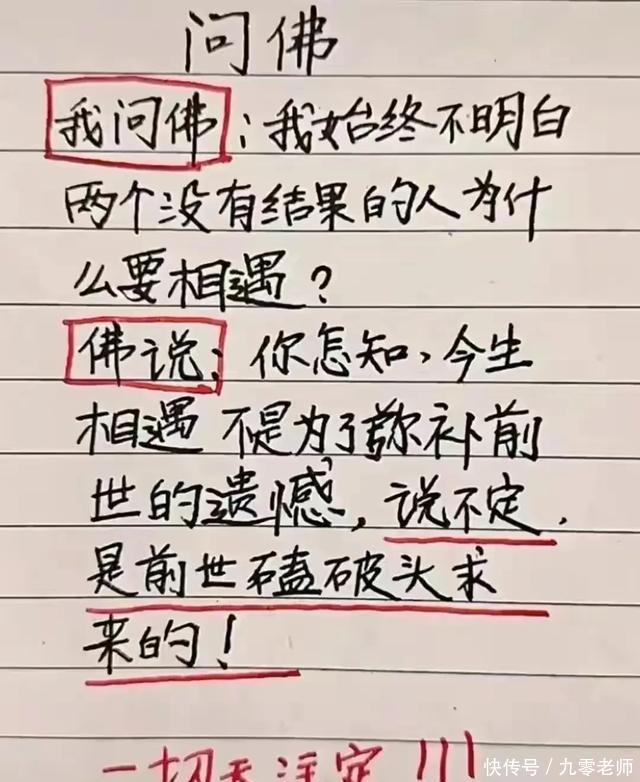 问佛
我问佛：我始终不明白
两个没有结果的人为什
么要相遇？
佛说：你怎知、今生
相遇 不是为了弥补前
世的遗憾，说不定，
是前世磕破头求
来的！
一切天注定!!!
快传号／九零老师